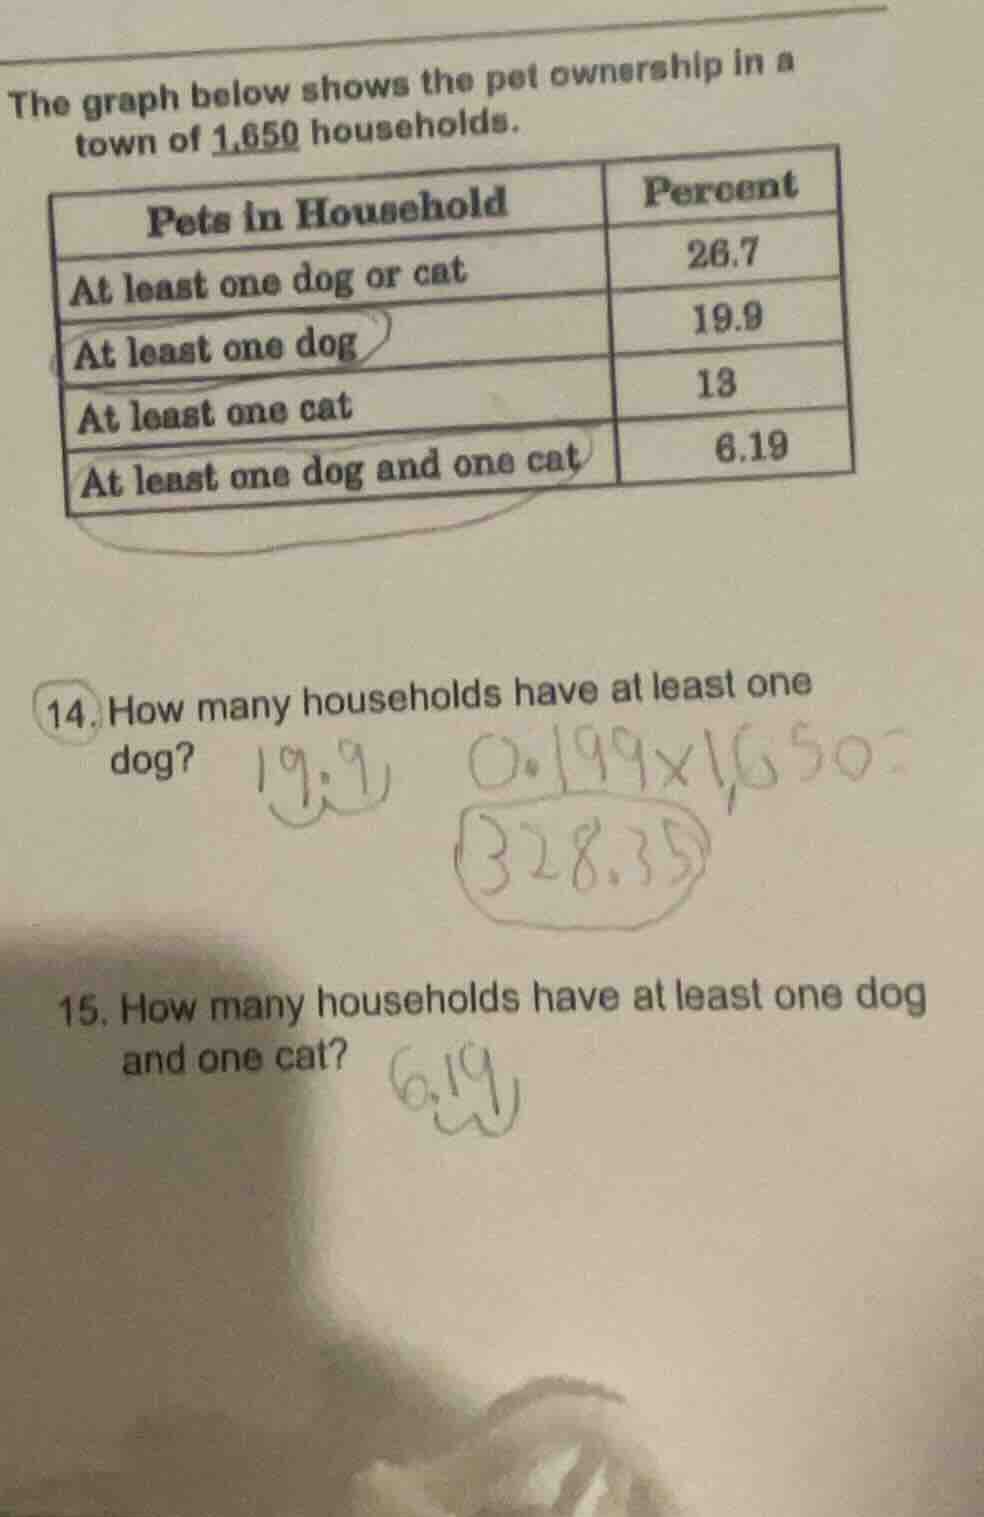 The graph below shows the pet ownership in a
town of 1,650 households.
Pets in Household Percent
At least one dog or cat 26.7
At least one dog 19.9
At least one cat 13
At least one dog and one cat 6.19
14. How many households have at least one
dog? 19.9 0.199x1,650=
328.35
15. How many households have at least one dog
and one cat? 6.19